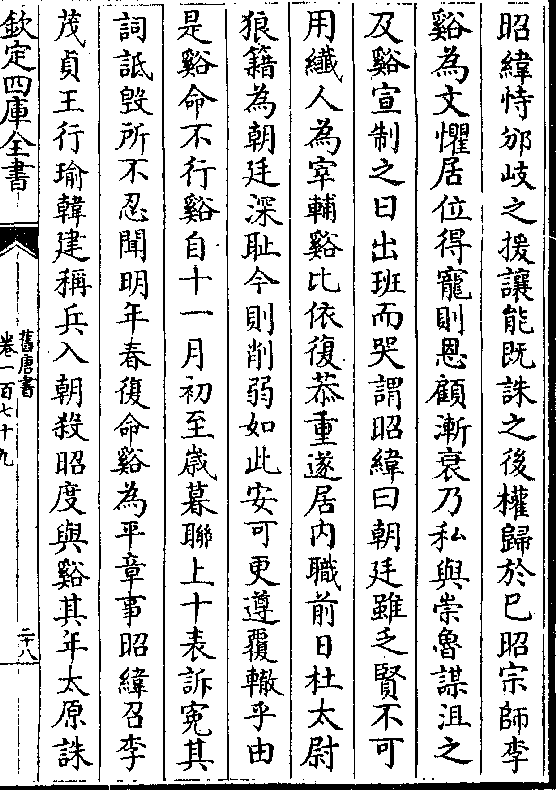 昭緯恃邠岐之援讓能既誅之後權歸於已昭宗師李
谿為文懼居位得寵則恩顧漸衰乃私與崇魯謀沮之
及谿宣制之日出班而哭謂昭緯曰朝廷雖乏賢不可
用纖人為宰輔谿比依復恭重遂居内職前日杜太尉
狼籍為朝廷深恥今則削弱如此安可更遵覆轍乎由
是谿命不行谿自十一月初至歲暮聯上十表訴寃其
詞詆毀所不忍聞明年春復命谿為平章事昭緯召李
茂貞王行瑜韓建稱兵入朝殺昭度與谿其年太原誅
欽定四庫全書
舊唐書
卷一百七十九
二十八